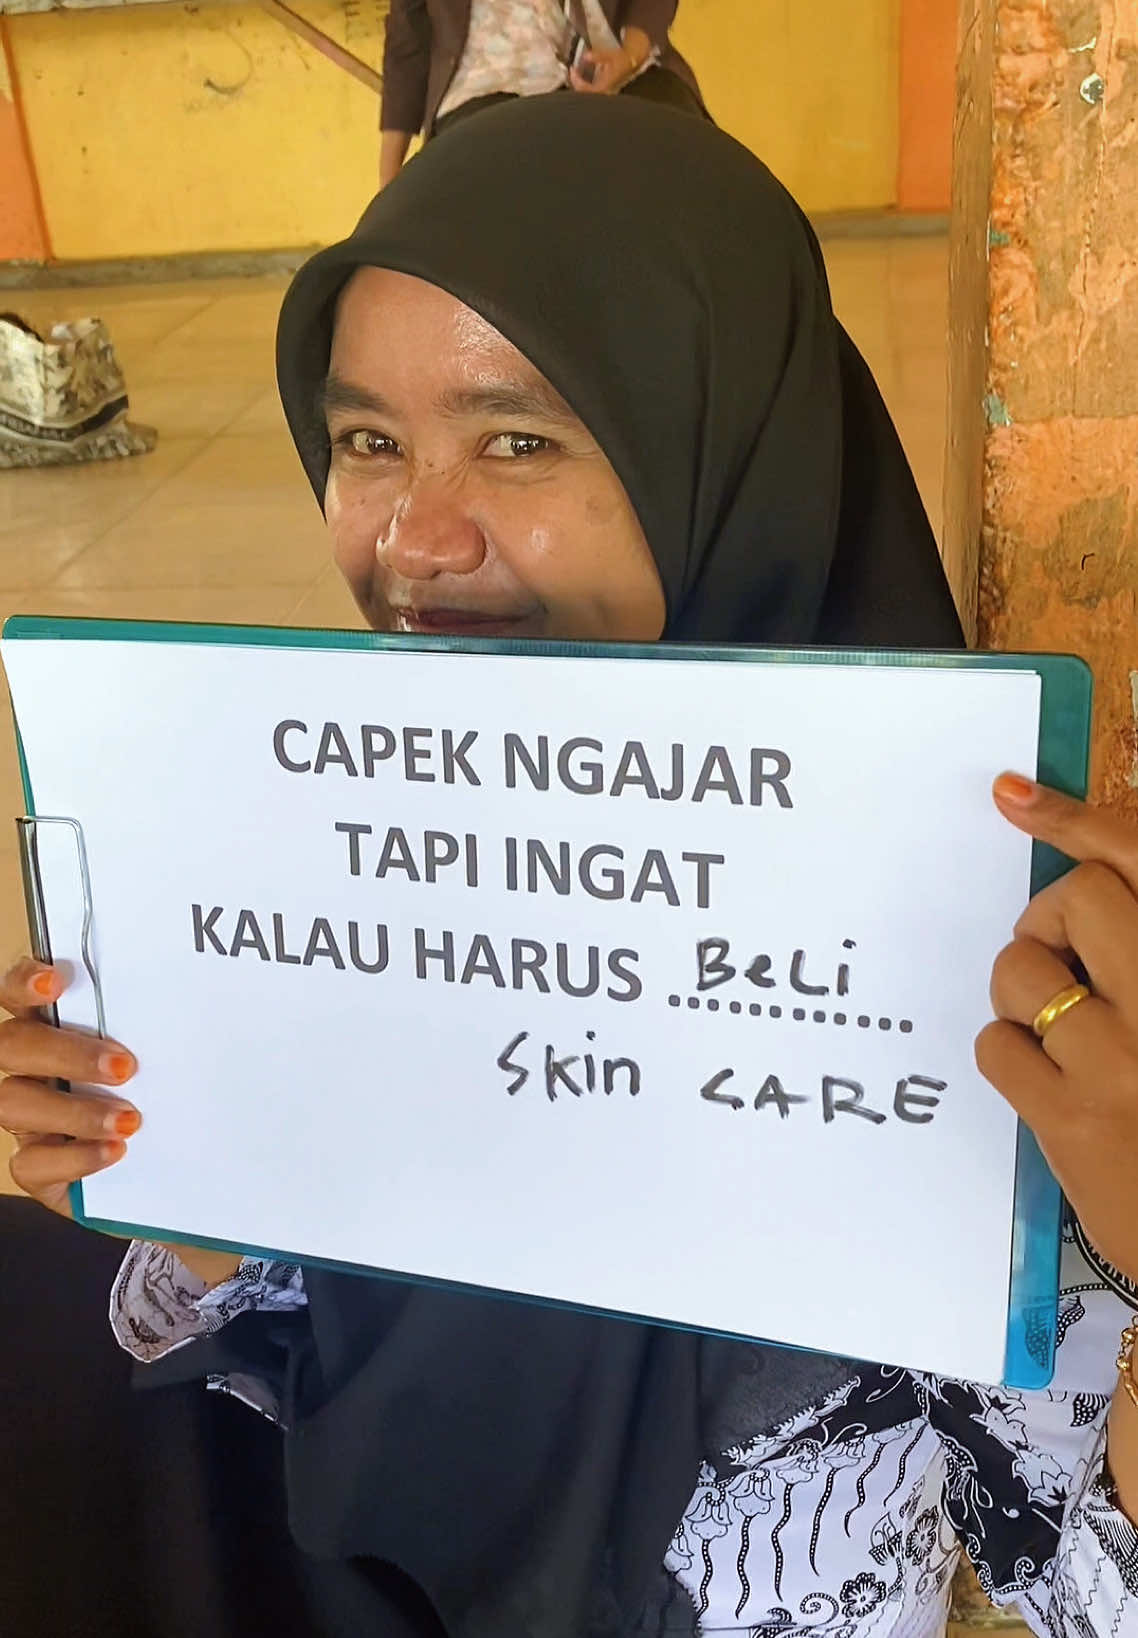 CAPEK NGAJAR
TAPI INGAT
KALAU HARUS BeLi
Skin CARE